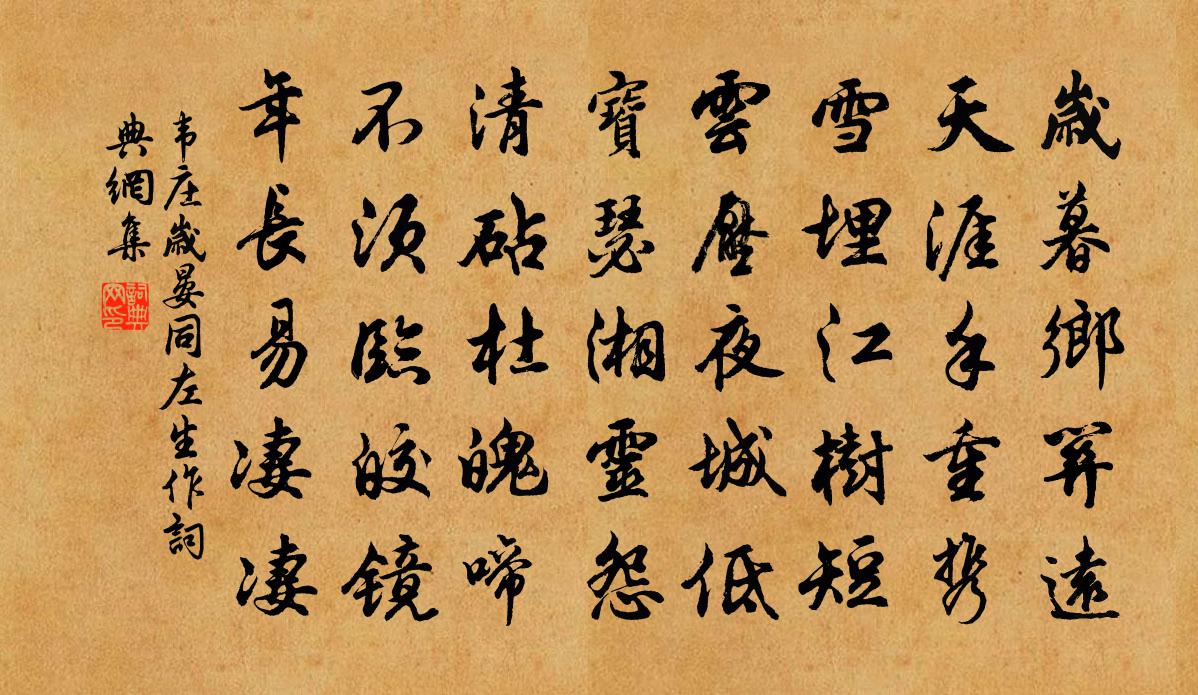 歲暮鄉關遠
天涯手重携
雪埋江樹短
雲壓夜城低
寶瑟湘靈怨
清砧杜魄啼
不須臨皎鏡
年長易凄凄
韦庄歲晏同左生作詞
典網集
詞典网印